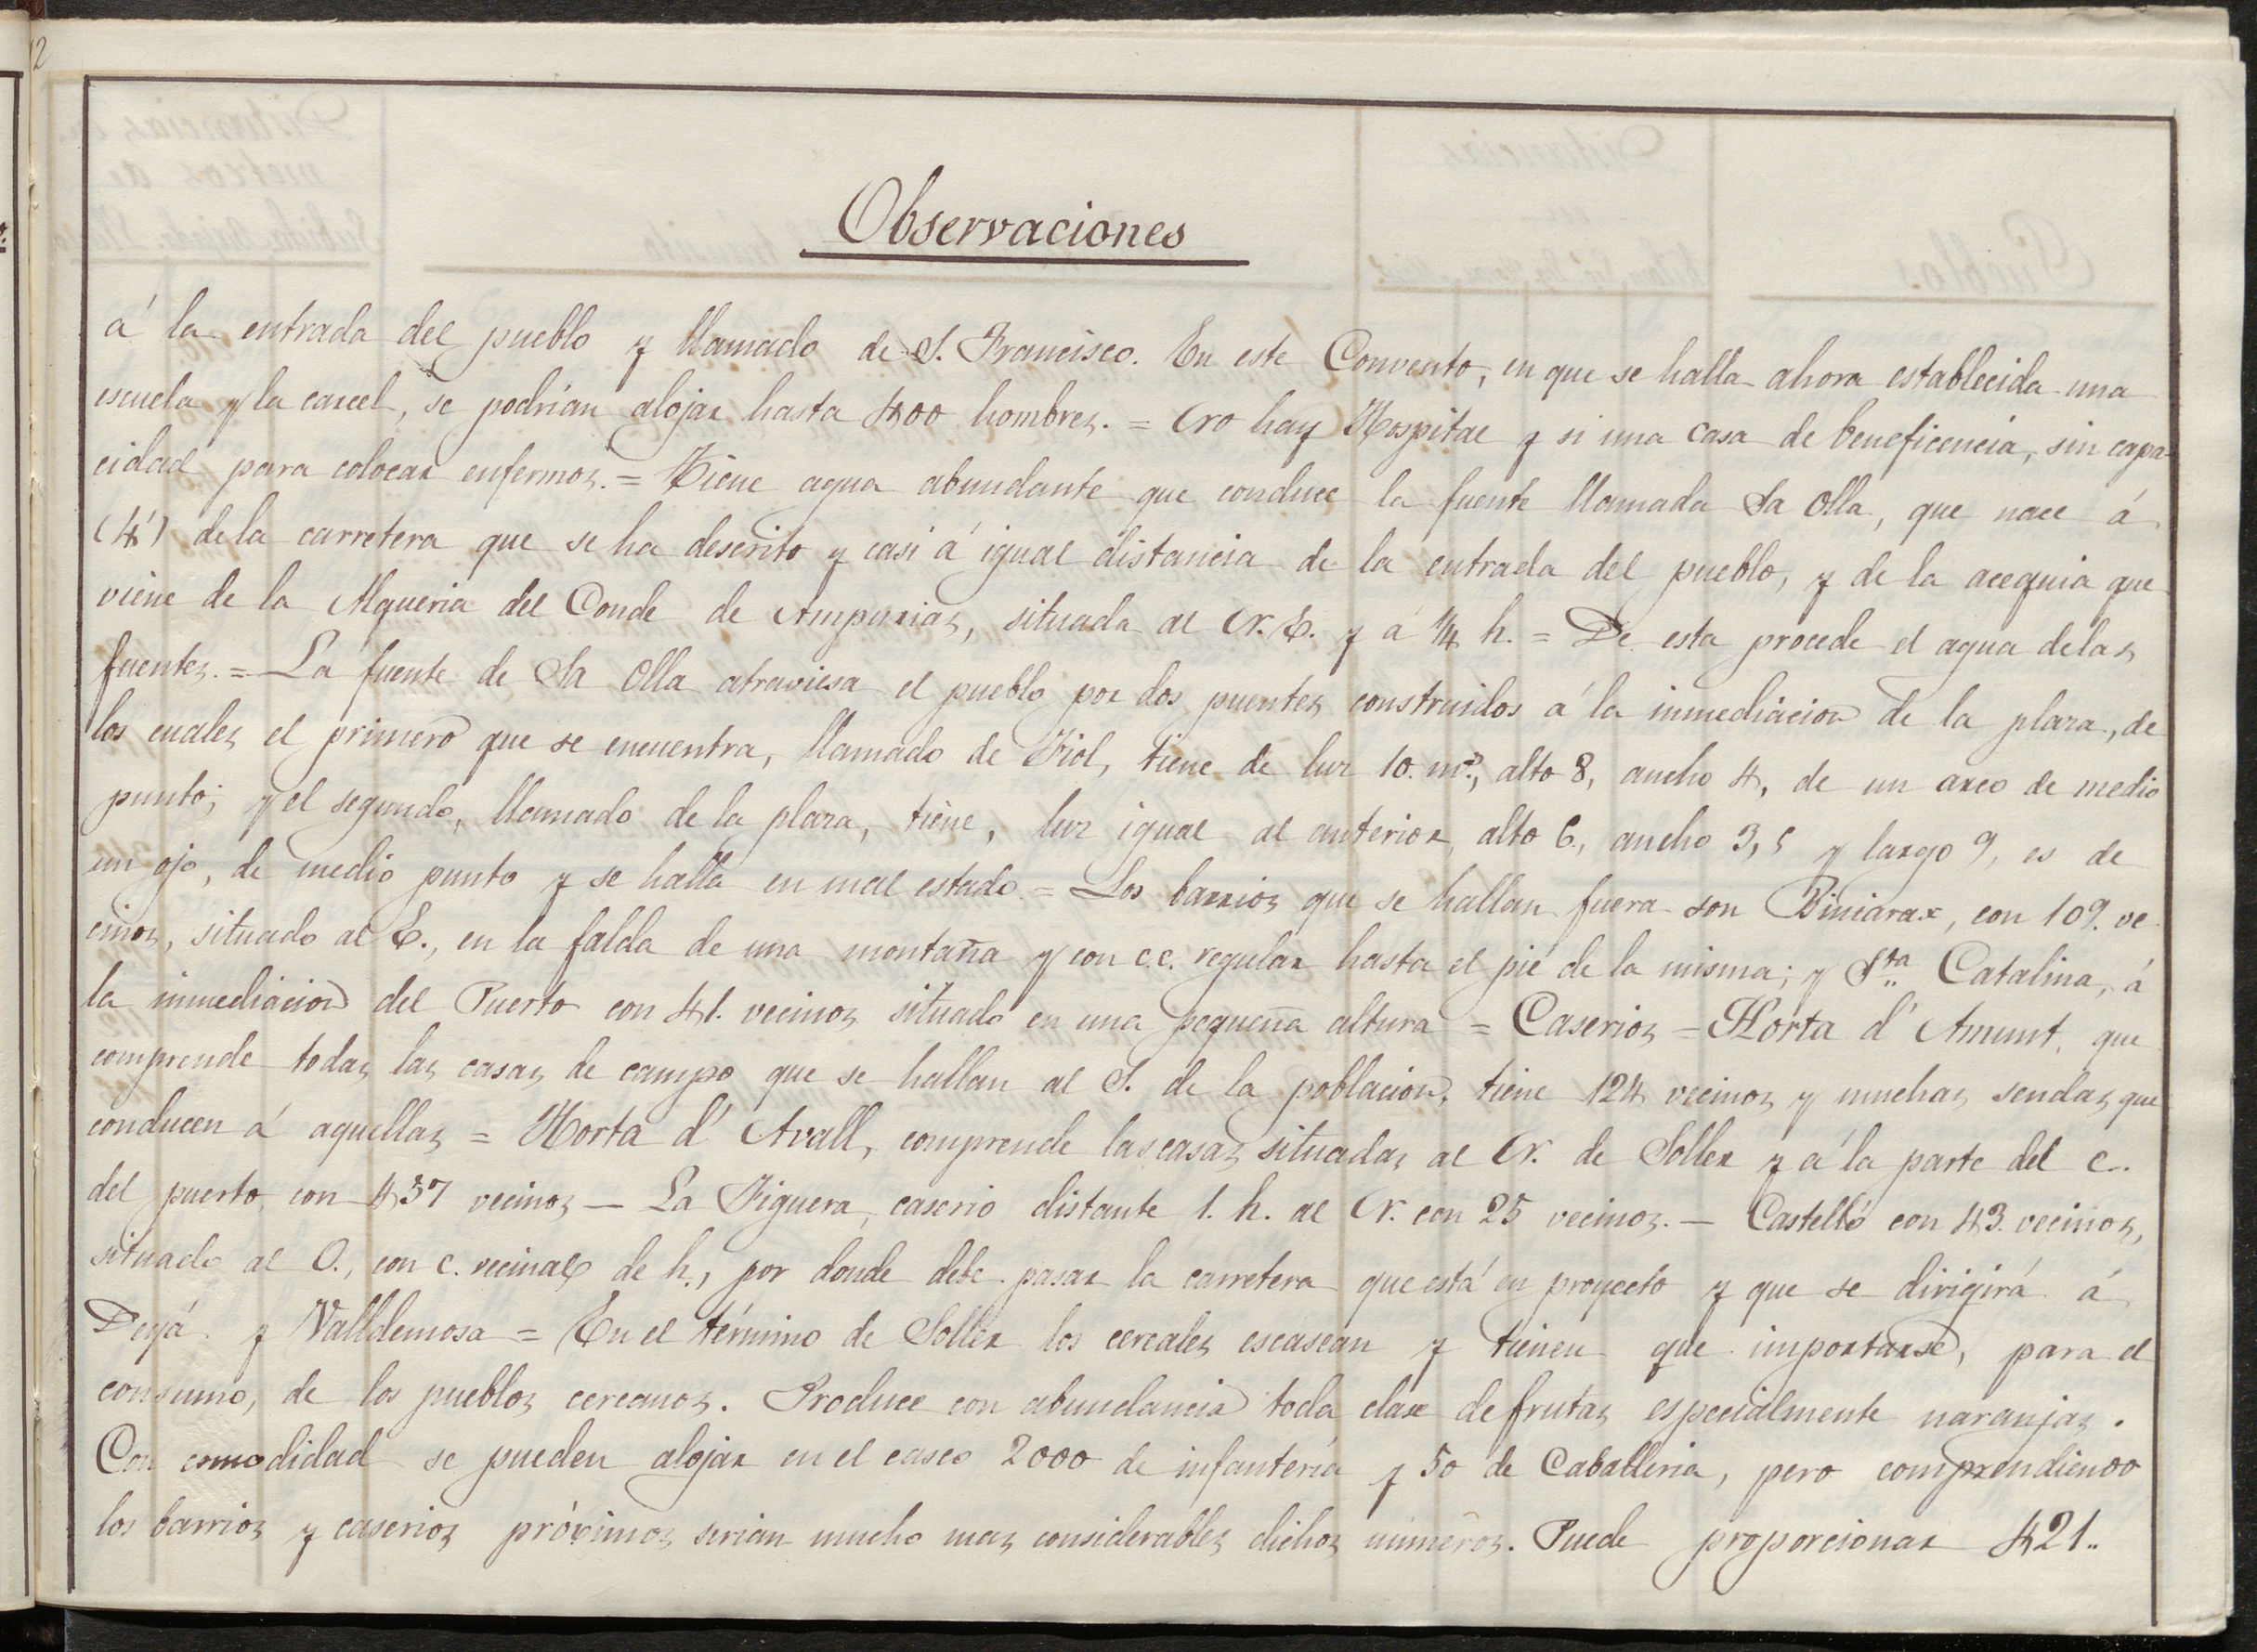 2
Observaciones
á la entrada del pueblo y llamado de S. Francisco. En este Convento, en que se halla ahora establecida una
escuela y la carcel, se podrian alojar hasta 400 hombres. = No hay Hospital y si una casa de beneficencia, sin capa-
cidad para colocar enfermos. = Tiene agua abundante que conduce la fuente llamada Sa Olla, que nace á
(4') de la carretera que se ha descrito y casi á igual distancia de la entrada del pueblo, y de la acequia que
viene de la Alqueria del Conde de Ampurias, situada al N.E. y á 1/4 h. = De esta procede el agua de las
fuentes. = La fuente de Sa Olla atraviesa el pueblo por dos puentes construidos á la inmediacion de la plaza, de
los cuales el primero que se encuentra, llamado de Fiol, tiene de luz 10. m.s, alto 8, ancho 4, de un arco de medio
punto; y el segundo, llamado de la plaza, tiene, luz igual al anterior, alto 6., ancho 3,5 y largo 9, es de
un ojo, de medio punto y se halla en mal estado = Los barrios que se hallan fuera son Biniarax, con 109. ve-
cinos, situado al E., en la falda de una montaña y con c.c. regular hasta el pié de la misma; y Sta. Catalina, á
la inmediacion del Puerto con 41. vecinos situado en una pequeña altura = Caserios = Horta d' Amunt, que
comprende todas las casas de campo que se hallan al S. de la poblacion, tiene 124 vecinos y muchas sendas que
conducen á aquellas = Horta d' Avall, comprende las casas situadas al N. de Soller y á la parte del c..
del puerto, con 437 vecinos — La Figuera, caserio distante 1. h. al N. con 25 vecinos. — Castelló con 43. vecinos,
situado al O., con c. vecinal de h., por donde debe pasar la carretera que está en proyecto y que se dirigirá á
Deyá y Valldemosa = En el término de Soller los cereales escasean y tienen que importarse, para el
consumo, de los pueblos cercanos. Produce con abundancia toda clase de frutas especialmente naranjas.
Con comodidad se pueden alojar en el casco 2000 de infanteria y 50 de Caballeria, pero comprendiendo
los barrios y caserios próximos serian mucho mas considerables dichos números. Puede proporcionar 421..